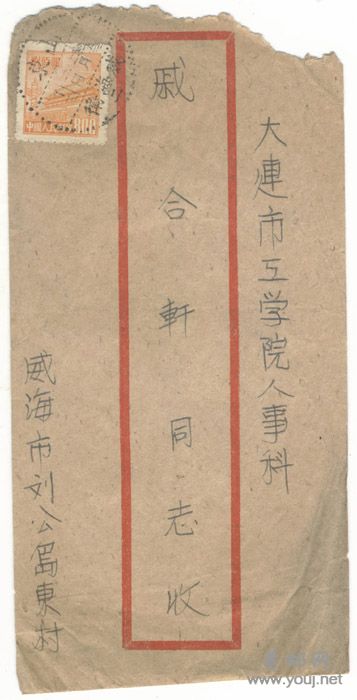 大連市工学院人事科
戚合軒同志收
威海市刘公島東村
800
www.youj.net